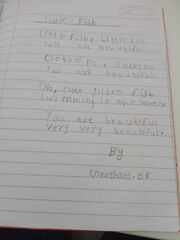 Little Fish
Little fish, Little fish
You are beautiful.
Clothe no a socks no
You are beautiful.
Oh, cute golden fish
swimming in the water
You are beautiful
very very beautiful.
By